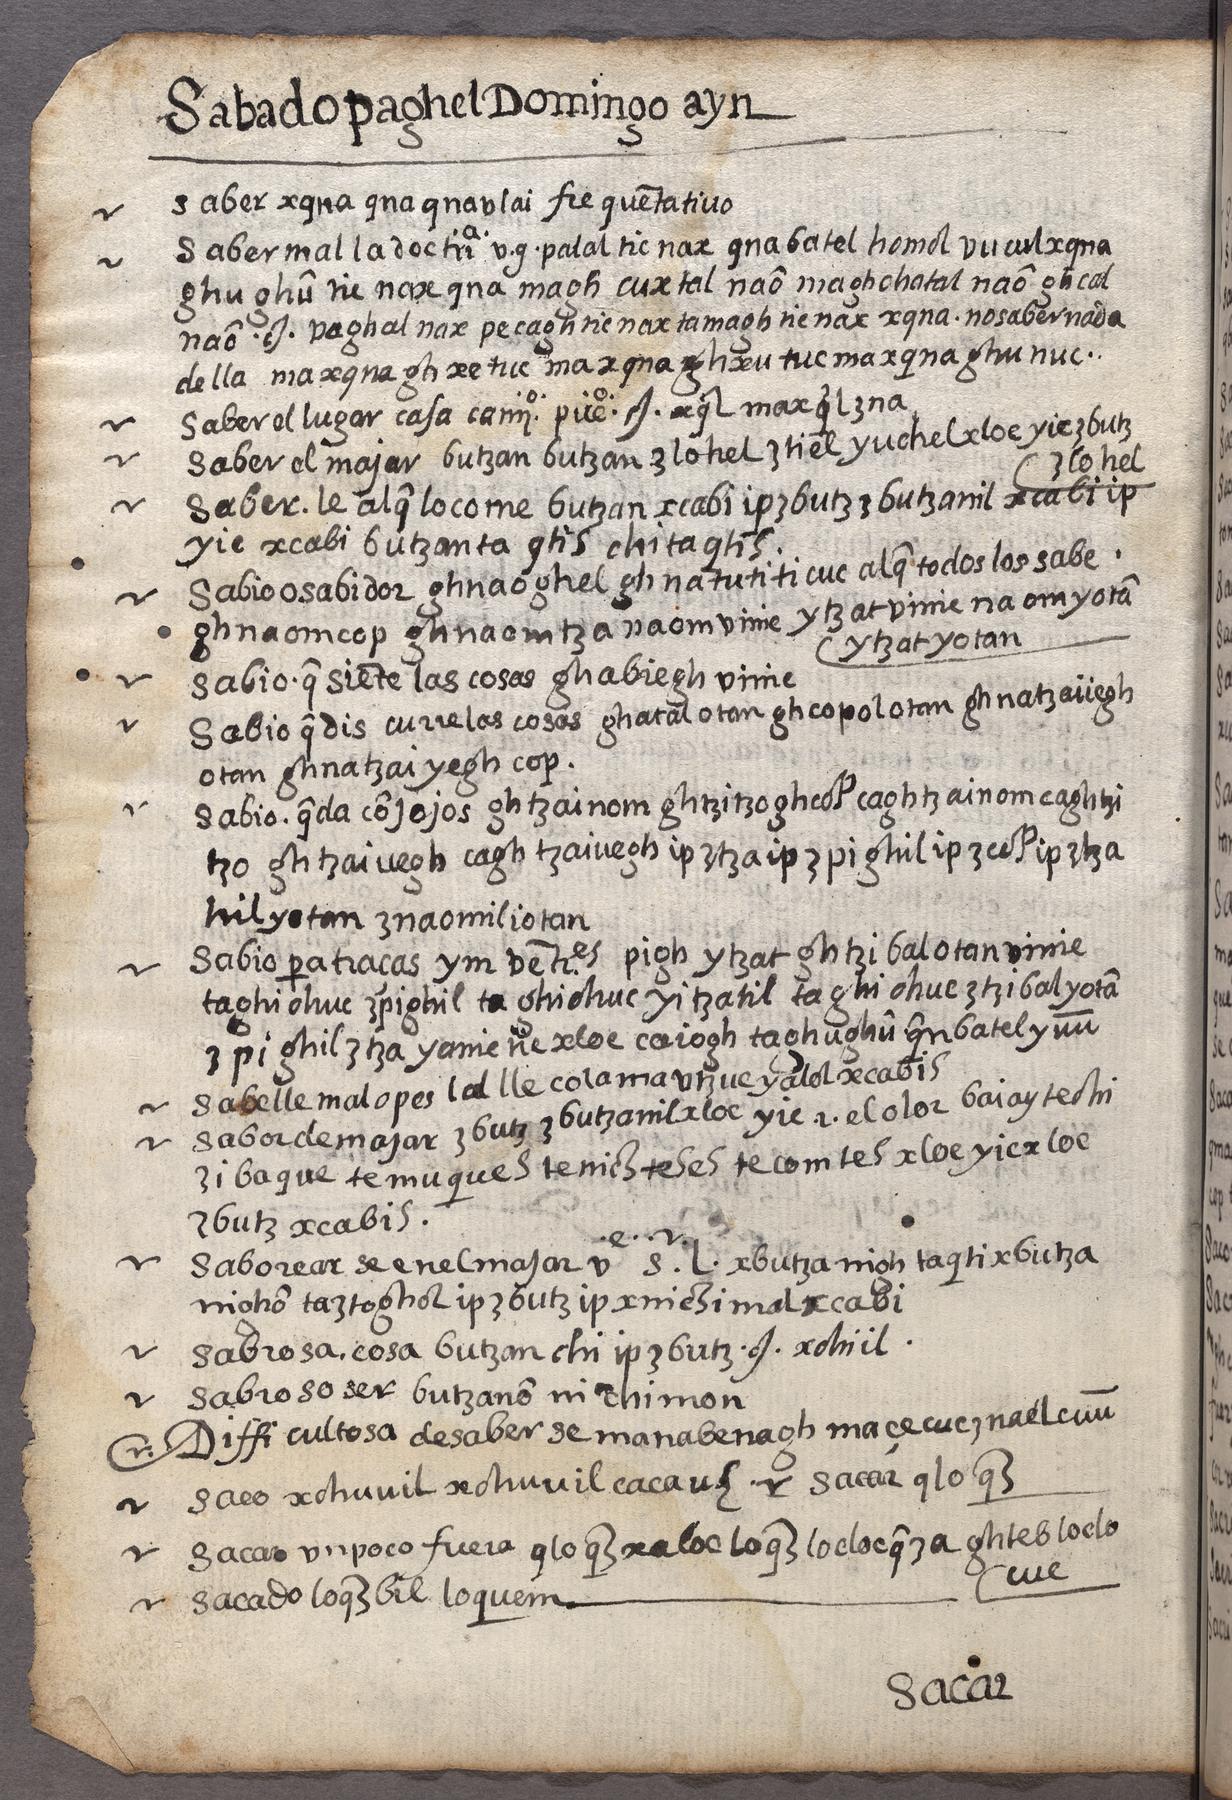 Sabado paghel Domingo ayn
saber xqna qna qnaulai frequētatiuo
Saber mal la doctriª. v.g. palal tic nax qna batel homol vucul xqna
ghu ghū tic nax qna magh cuxtal naō magh chatal naō gh cal
naō .ɔ. paghal nax pecagh tic nax tamagh tic nax xqna. no saber nada
della maxqna gh xe tuc maxqna ghxu tuc maxqna ghu nuc..
Saber el lugar casa camº. pueº. ɔ. xql maxql ʒna
Saber el majar butʒan butʒan ʒlohel ʒtiel yuchel xloe yic ʒbutz
(ʒlohel
Saber. le alq̄ lo come butʒan xcabi ip ʒbutʒ ʒ butʒanil xcabi ip
yic xcabi butʒanta qtis chita qtis.
Sabio o sabidor ghnaoghel ghnatutiticuc alq̄ todos los sabe .
ghnaomcop ghnaomtʒa naom vinic ytʒat vinic naom yotā
(ytʒat yotan
Sabio. q̄ siēte las cosas ghabiegh vinic
Sabio q̄ dis curre las cosas ghatal otan ghcopol otan ghnatʒaiiegh
otan ghnatʒai yegh cop.
Sabio. q̄ da cōsojos ghtʒainom ghtʒitʒogh cop caghtʒainom caghtʒi
tʒo ghtʒaiuegh cagh tʒaiuegh ip ʒtʒa ip ʒ pighil ip ʒcop ip ʒtʒa
hil yotan ʒnaomil iotan
Sabio pa tracas ym vētes pigh ytʒat ghtʒibal otan vinic
taghichuc ʒpighil taghichuc yitʒatil taghichuc ʒtʒibal yotā
ʒ pighil ʒtʒa yanie xloe caiogh taghughū batel yūū
Sabelle mal o pes lalle colama utʒuc yalol xcabis
Sabor de majar ʒbutʒ ʒbutʒanil xloe yic .r. el olor baiay techi
ʒibaque temuques tenichteses tecomtes xloe yic xloe
ʒbutʒ xcabis.
Saborear se en el majar ve s.r.l. xbutʒanigh taqti xbutʒa
nighō taʒtoghol ip ʒbutʒ ip xnichimal xcabi
Sabrosa. cosa butʒan chi ip ʒbutʒ .ɔ. xchiil .
Sabroso ser butʒanō nichimon
(r. Difficultosa de saber se manabenagh maçecuc ʒnaelcūū
Saco xchuuil xchuuil cacau . r sacar qlo qʒ
Sacar vn poco fuera qlo qʒ xaloc loqʒ locloc q̄ʒa ghteb loclo
(cuc
Sacado loqʒbil loquem
Sacar